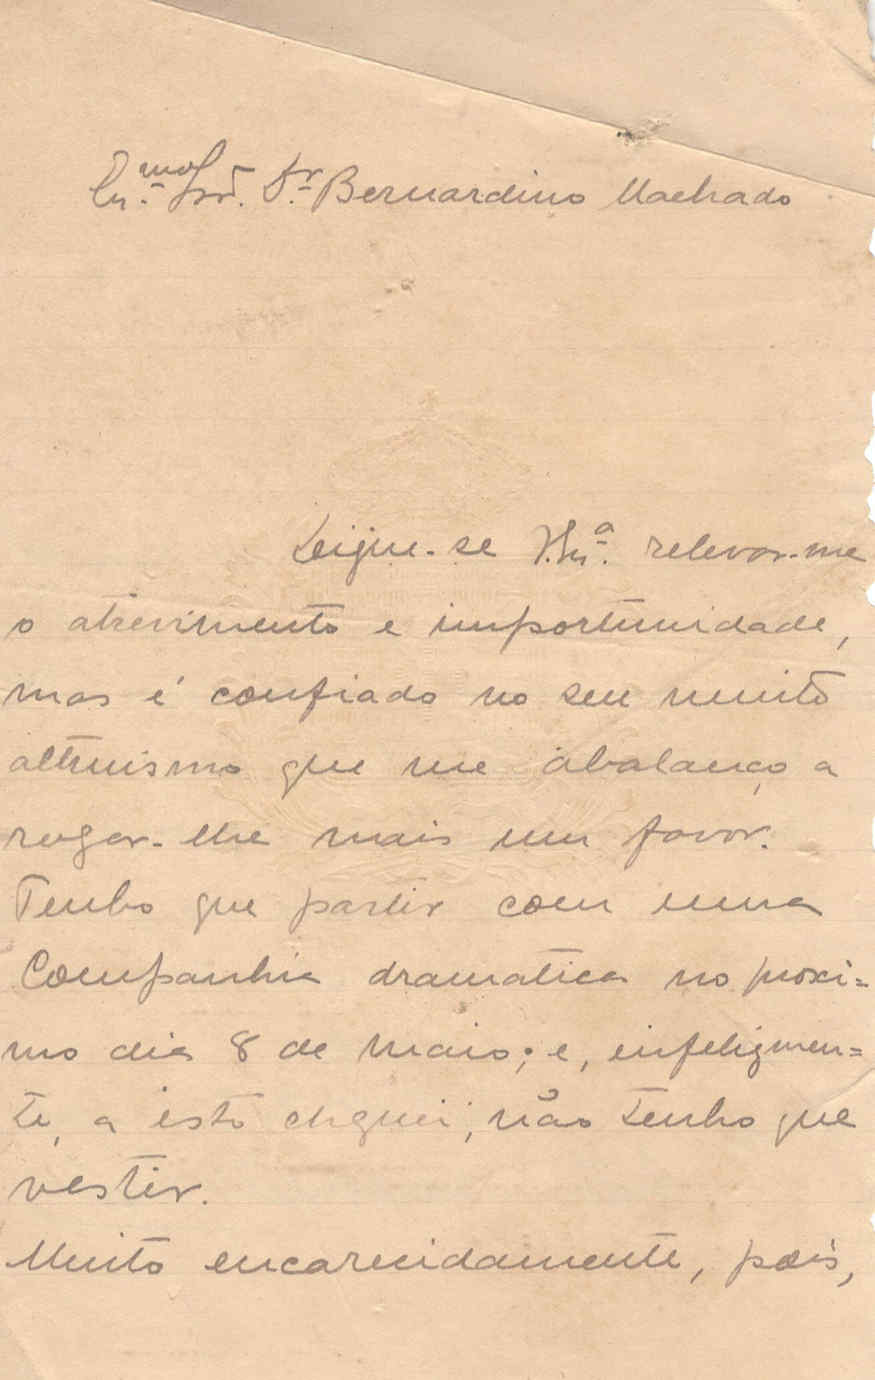 Ex.mo Snr. Dr. Bernardino Machado
Digne-se V. Ex.ª relevar-me
o atrevimento e importunidade,
mas é confiado no seu muito
altruismo que me abalanço a
rogar-lhe mais um favor.
Tenho que partir com uma
Companhia dramatica no proxi=
mo dia 8 de Maio; e, infelizmen=
te, a isto cheguei, não tenho que
vestir.
Muito encarecidamente, pois,